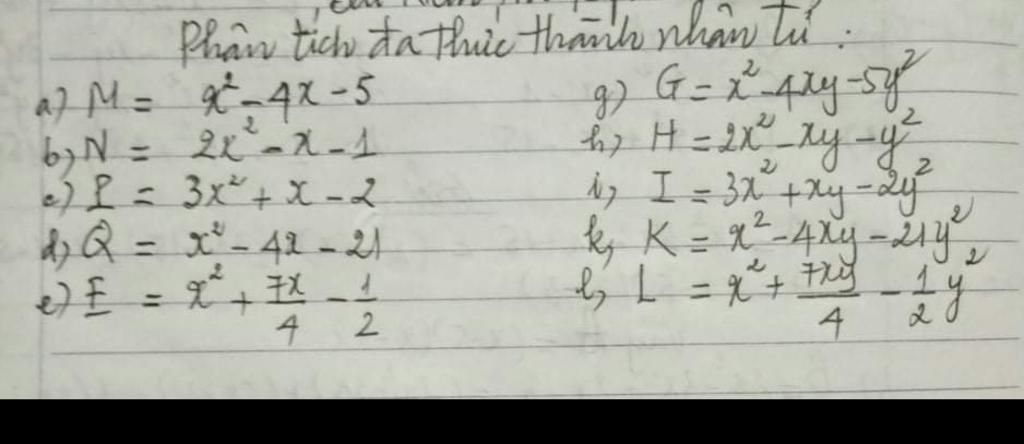 Phân tích đa thức thành nhân tử :
a) M = x² - 4x - 5
b) N = 2x² - x - 1
c) P = 3x² + x - 2
d) Q = x² - 4x - 21
e) F = x² + 7x/4 - 1/2
g) G = x² - 4xy - 5y²
h) H = 2x² - xy - y²
i) I = 3x² + xy - 2y²
k) K = x² - 4xy - 21y²
l) L = x² + 7xy/4 - 1/2 y²